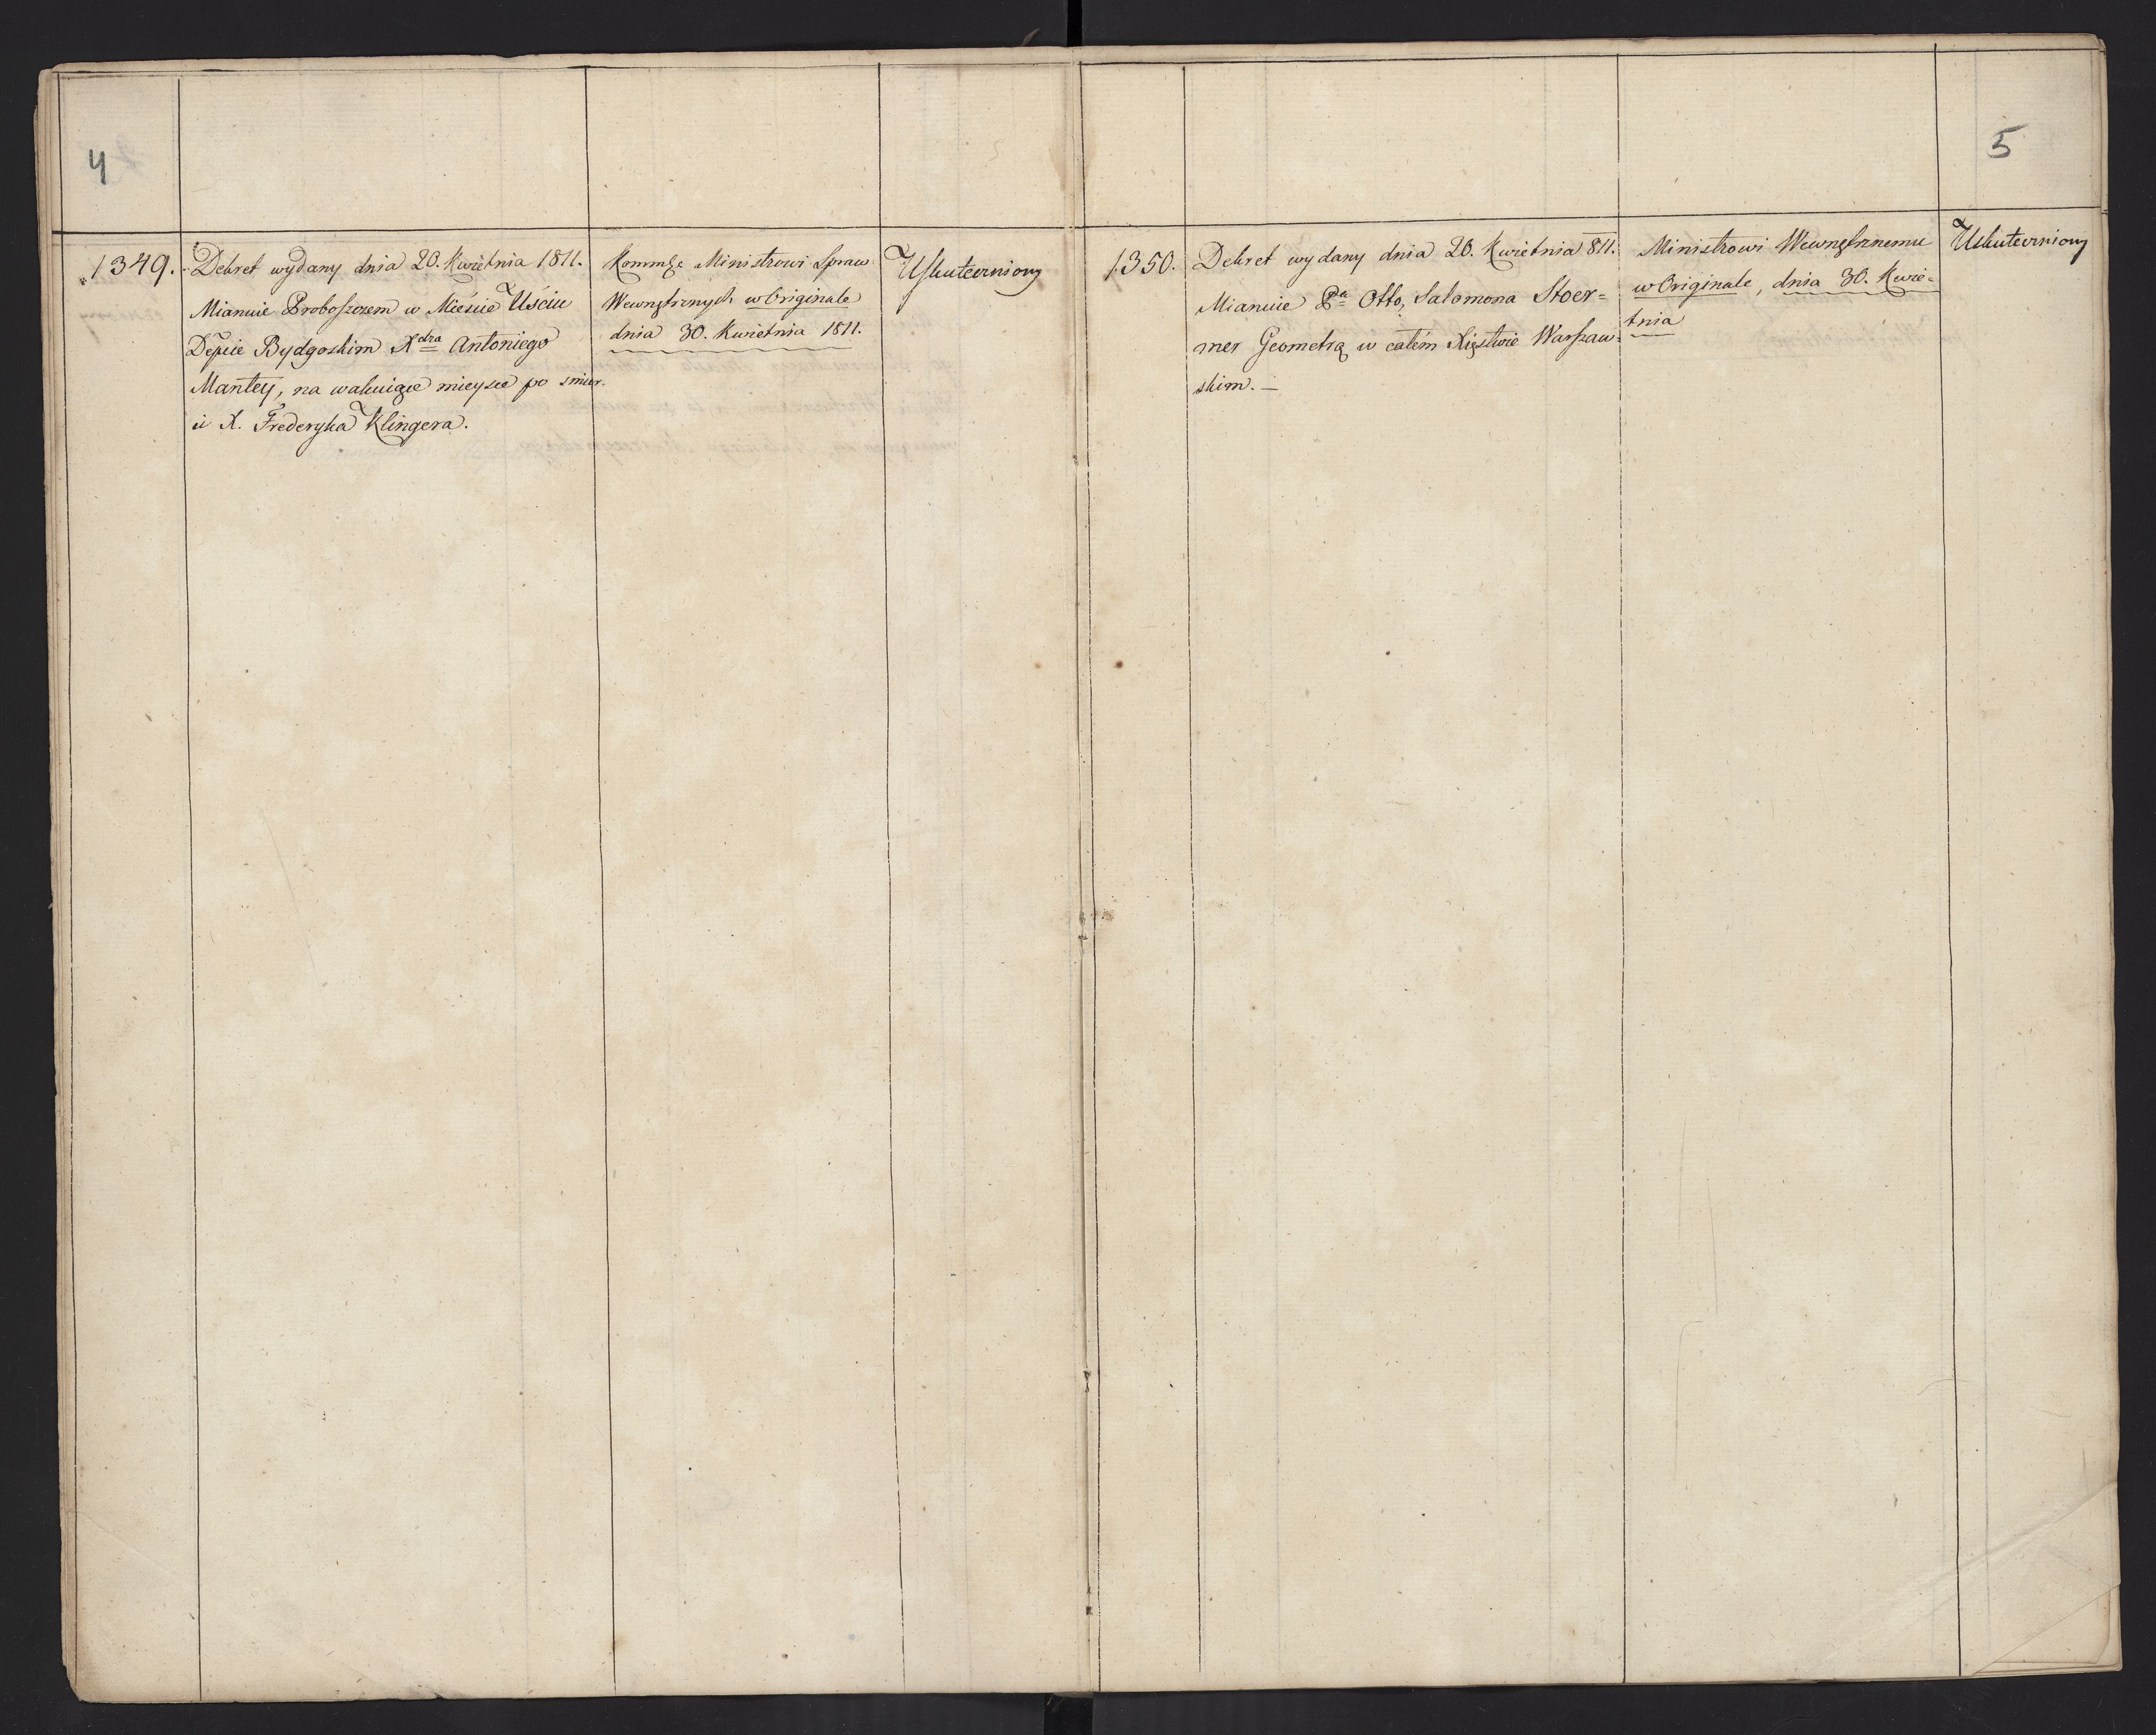 4
1349.
Dekret wydany dnia 20. Kwietnia 1811.
Mianuie Proboszczem w Mieście Uściu
Depcie Bydgoskim Xdza Antoniego
Mantey, na wakuiące mieysce po śmier-
ci X. Fryderyka Klingera.
Ministrowi Spraw
Wewnętrznych w Originale
dnia 30. Kwietnia 1811.
Uskuteczniony
5
1350.
Dekret wydany dnia 20. Kwietnia 811.
Mianuie Pa Otto, Salomona Stoer=
mer Geometrą w całém Xięstwie Warszaw=
skim. —
Ministrowi Wewnętrznemu
w Originale, dnia 30. Kwie=
tnia
Uskuteczniony